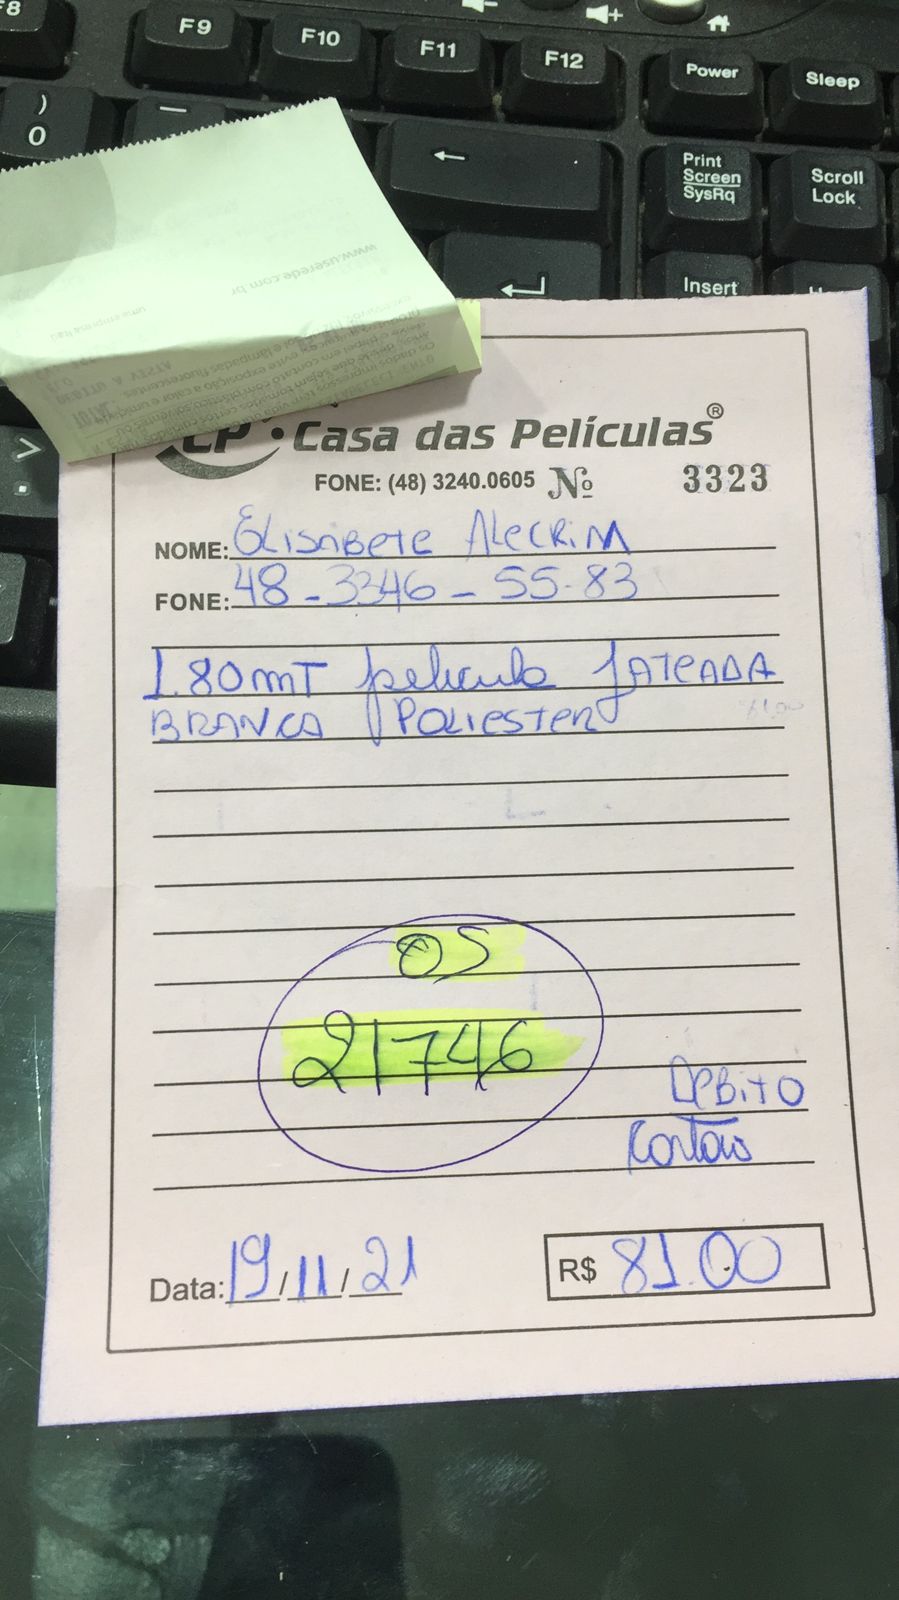 F8
F9
F10
F11
F12
Power
Sleep
)
0
—
←
Print
Screen
SysRq
Scroll
Lock
Insert
>
.
www.userede.com.br
uma empresa Itaú
CP • Casa das Películas®
FONE: (48) 3240.0605 Nº 3323
NOME: Elisabete Alecrim
FONE: 48-3346-55-83
1.80mT pelicula JATEADA
BRANCA POLIESTER
OS
21746
DEBITO
Cartão
Data: 19/11/21
R$ 81.00